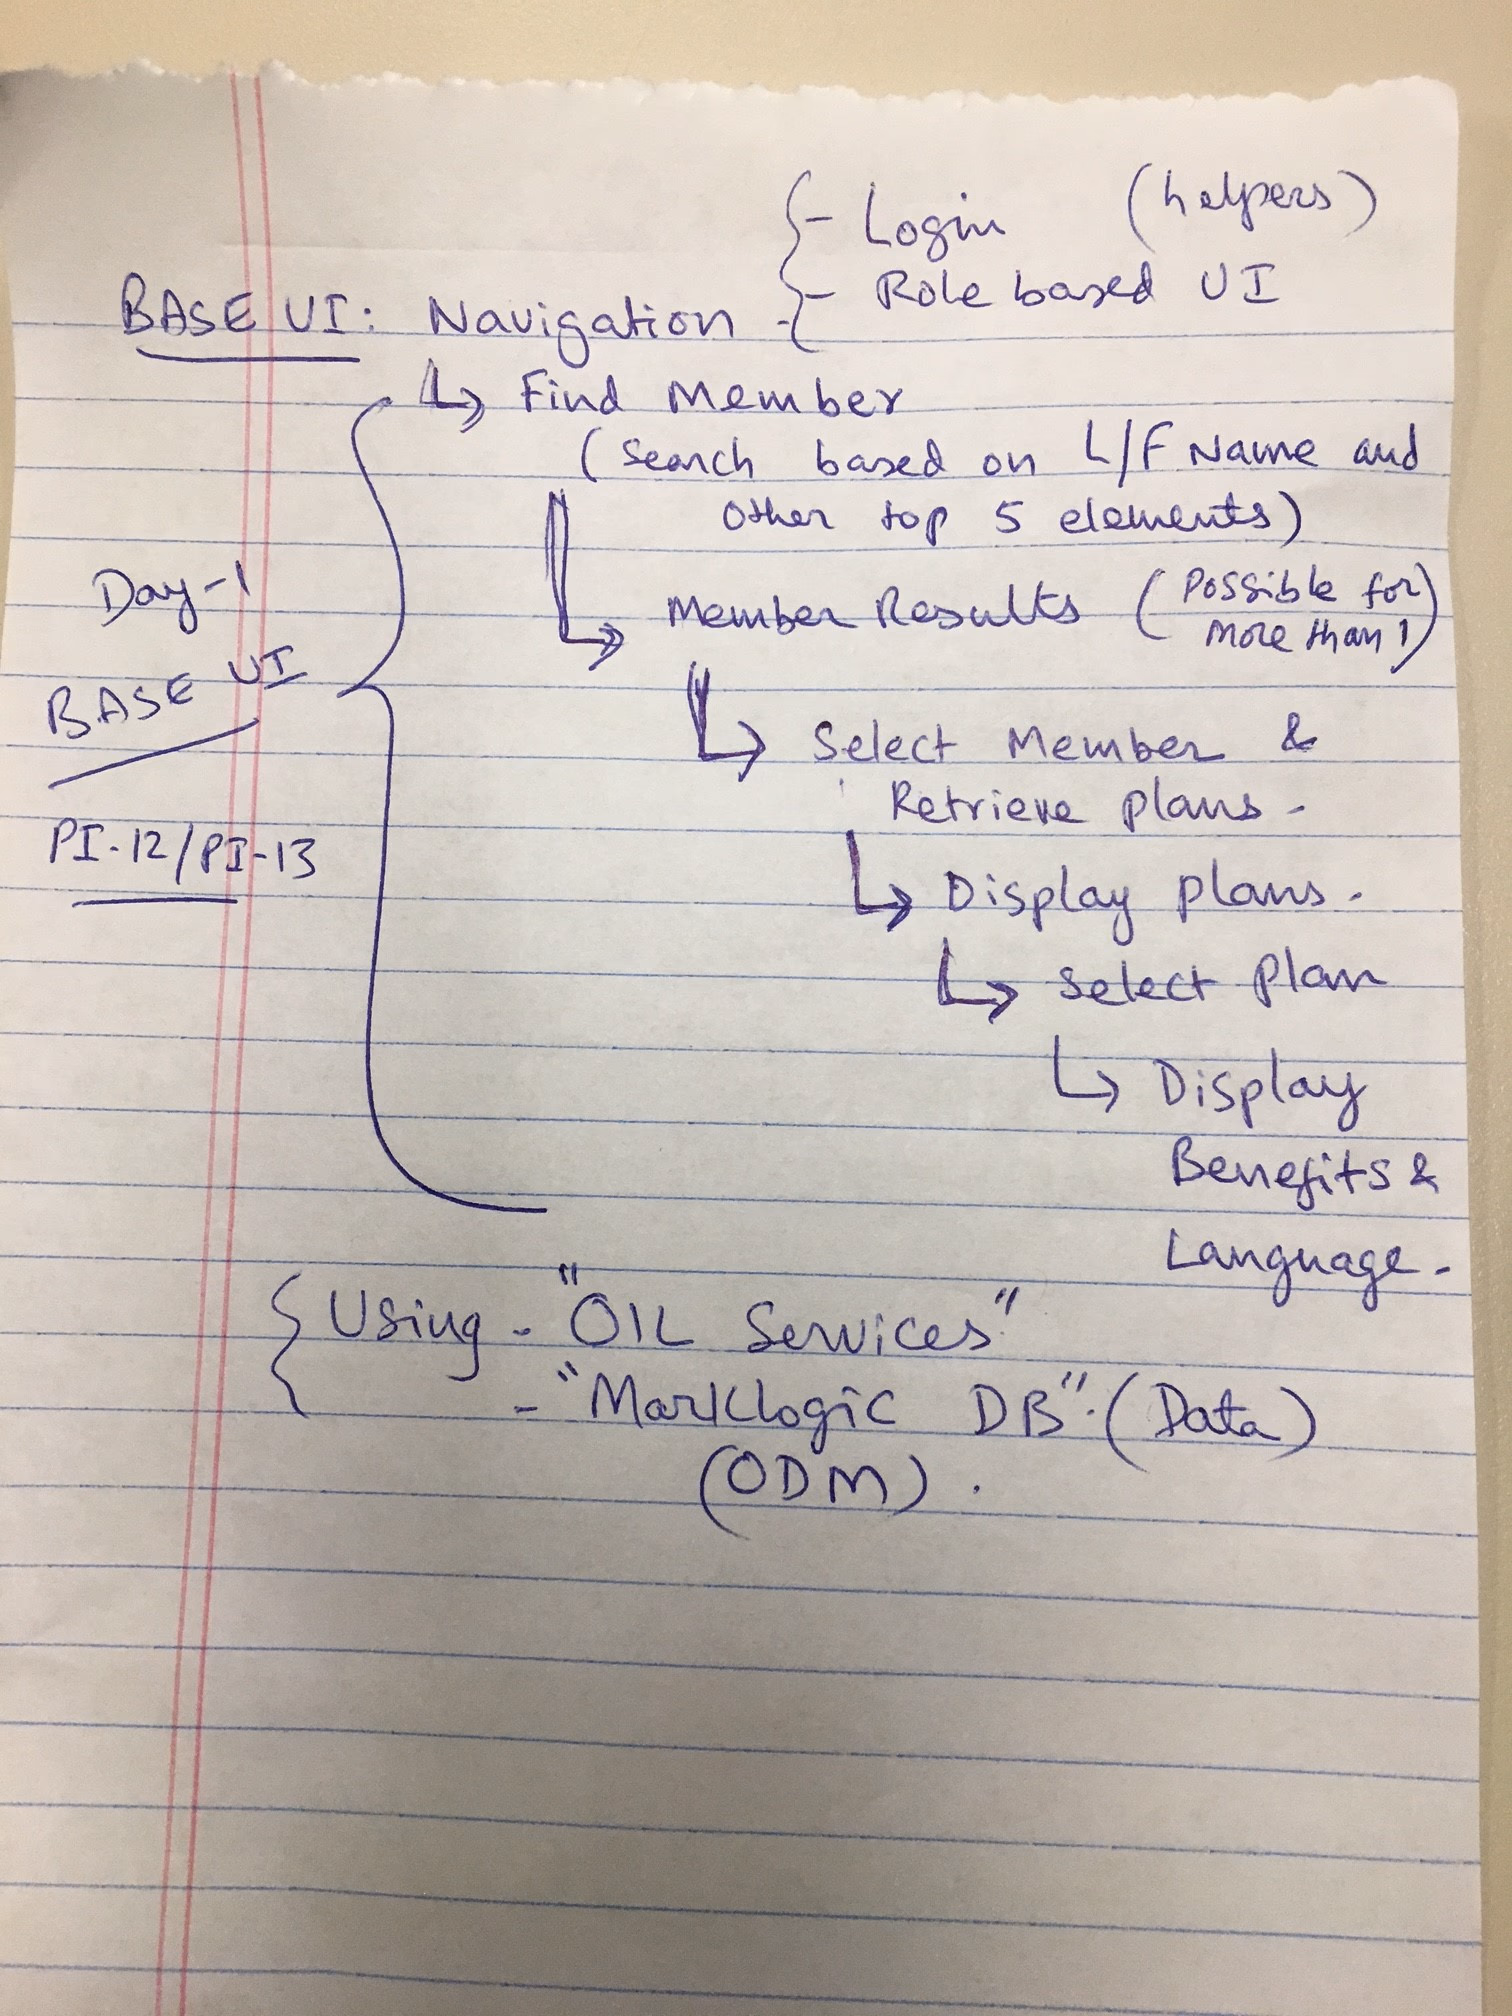 - Login (helpers)
- Role based UI
BASE UI: Navigation -
↳ Find Member
(Search based on L/F Name and
Other top 5 elements)
↳ Member Results (Possible for
more than 1)
↳ Select Member &
Retrieve plans -
↳ Display plans.
↳ Select Plan
↳ Display
Benefits &
Language.
Day-1
BASE UI
PI-12/PI-13
Using - "OIL Services"
- "MarkLogic DB". (Data)
(ODM).